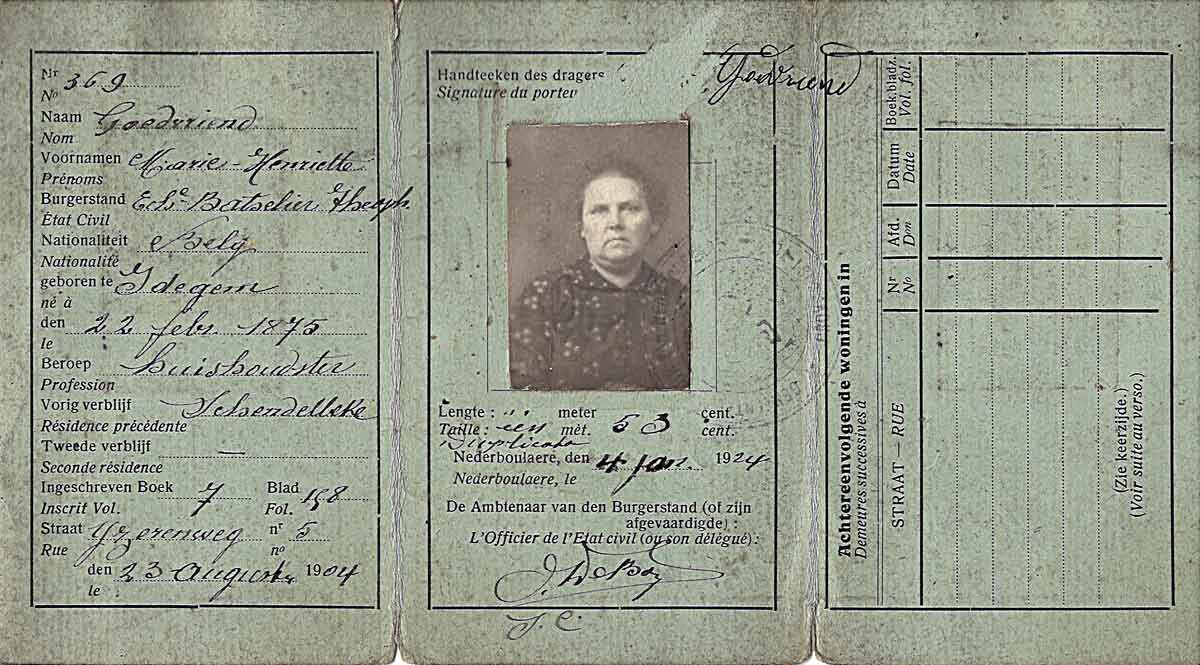 Nr 369
No
Naam Goedvriend
Nom
Voornamen Marie-Henriette
Prénoms
Burgerstand Echte Batselier Theoph
État Civil
Nationaliteit Belg
Nationalité
geboren te Idegem
né à
den 22 febr. 1875
le
Beroep huishoudster
Profession
Vorig verblijf Schendelbeke
Résidence précédente
Tweede verblijf —
Seconde résidence
Ingeschreven Boek 7 Blad 198
Inscrit Vol. Fol.
Straat Yzerenweg nr 5
Rue no
den 23 Augustus 1904
le
Handteeken des dragers Goedvriend
Signature du porteur
Lengte : meter 53 cent.
Taille : een mèt. cent.
Duplicata
Nederboulaere, den 4 jan. 1924
Nederboulaere, le
De Ambtenaar van den Burgerstand (of zijn
afgevaardigde) :
L'Officier de l'Etat civil (ou son délégué) :
Achtereenvolgende woningen in
Demeures successives à
STRAAT — RUE
Nr
No
Afd.
Don
Datum
Date
Boek bladz.
Vol. fol.
(Zie keerzijde.)
(Voir suite au verso.)